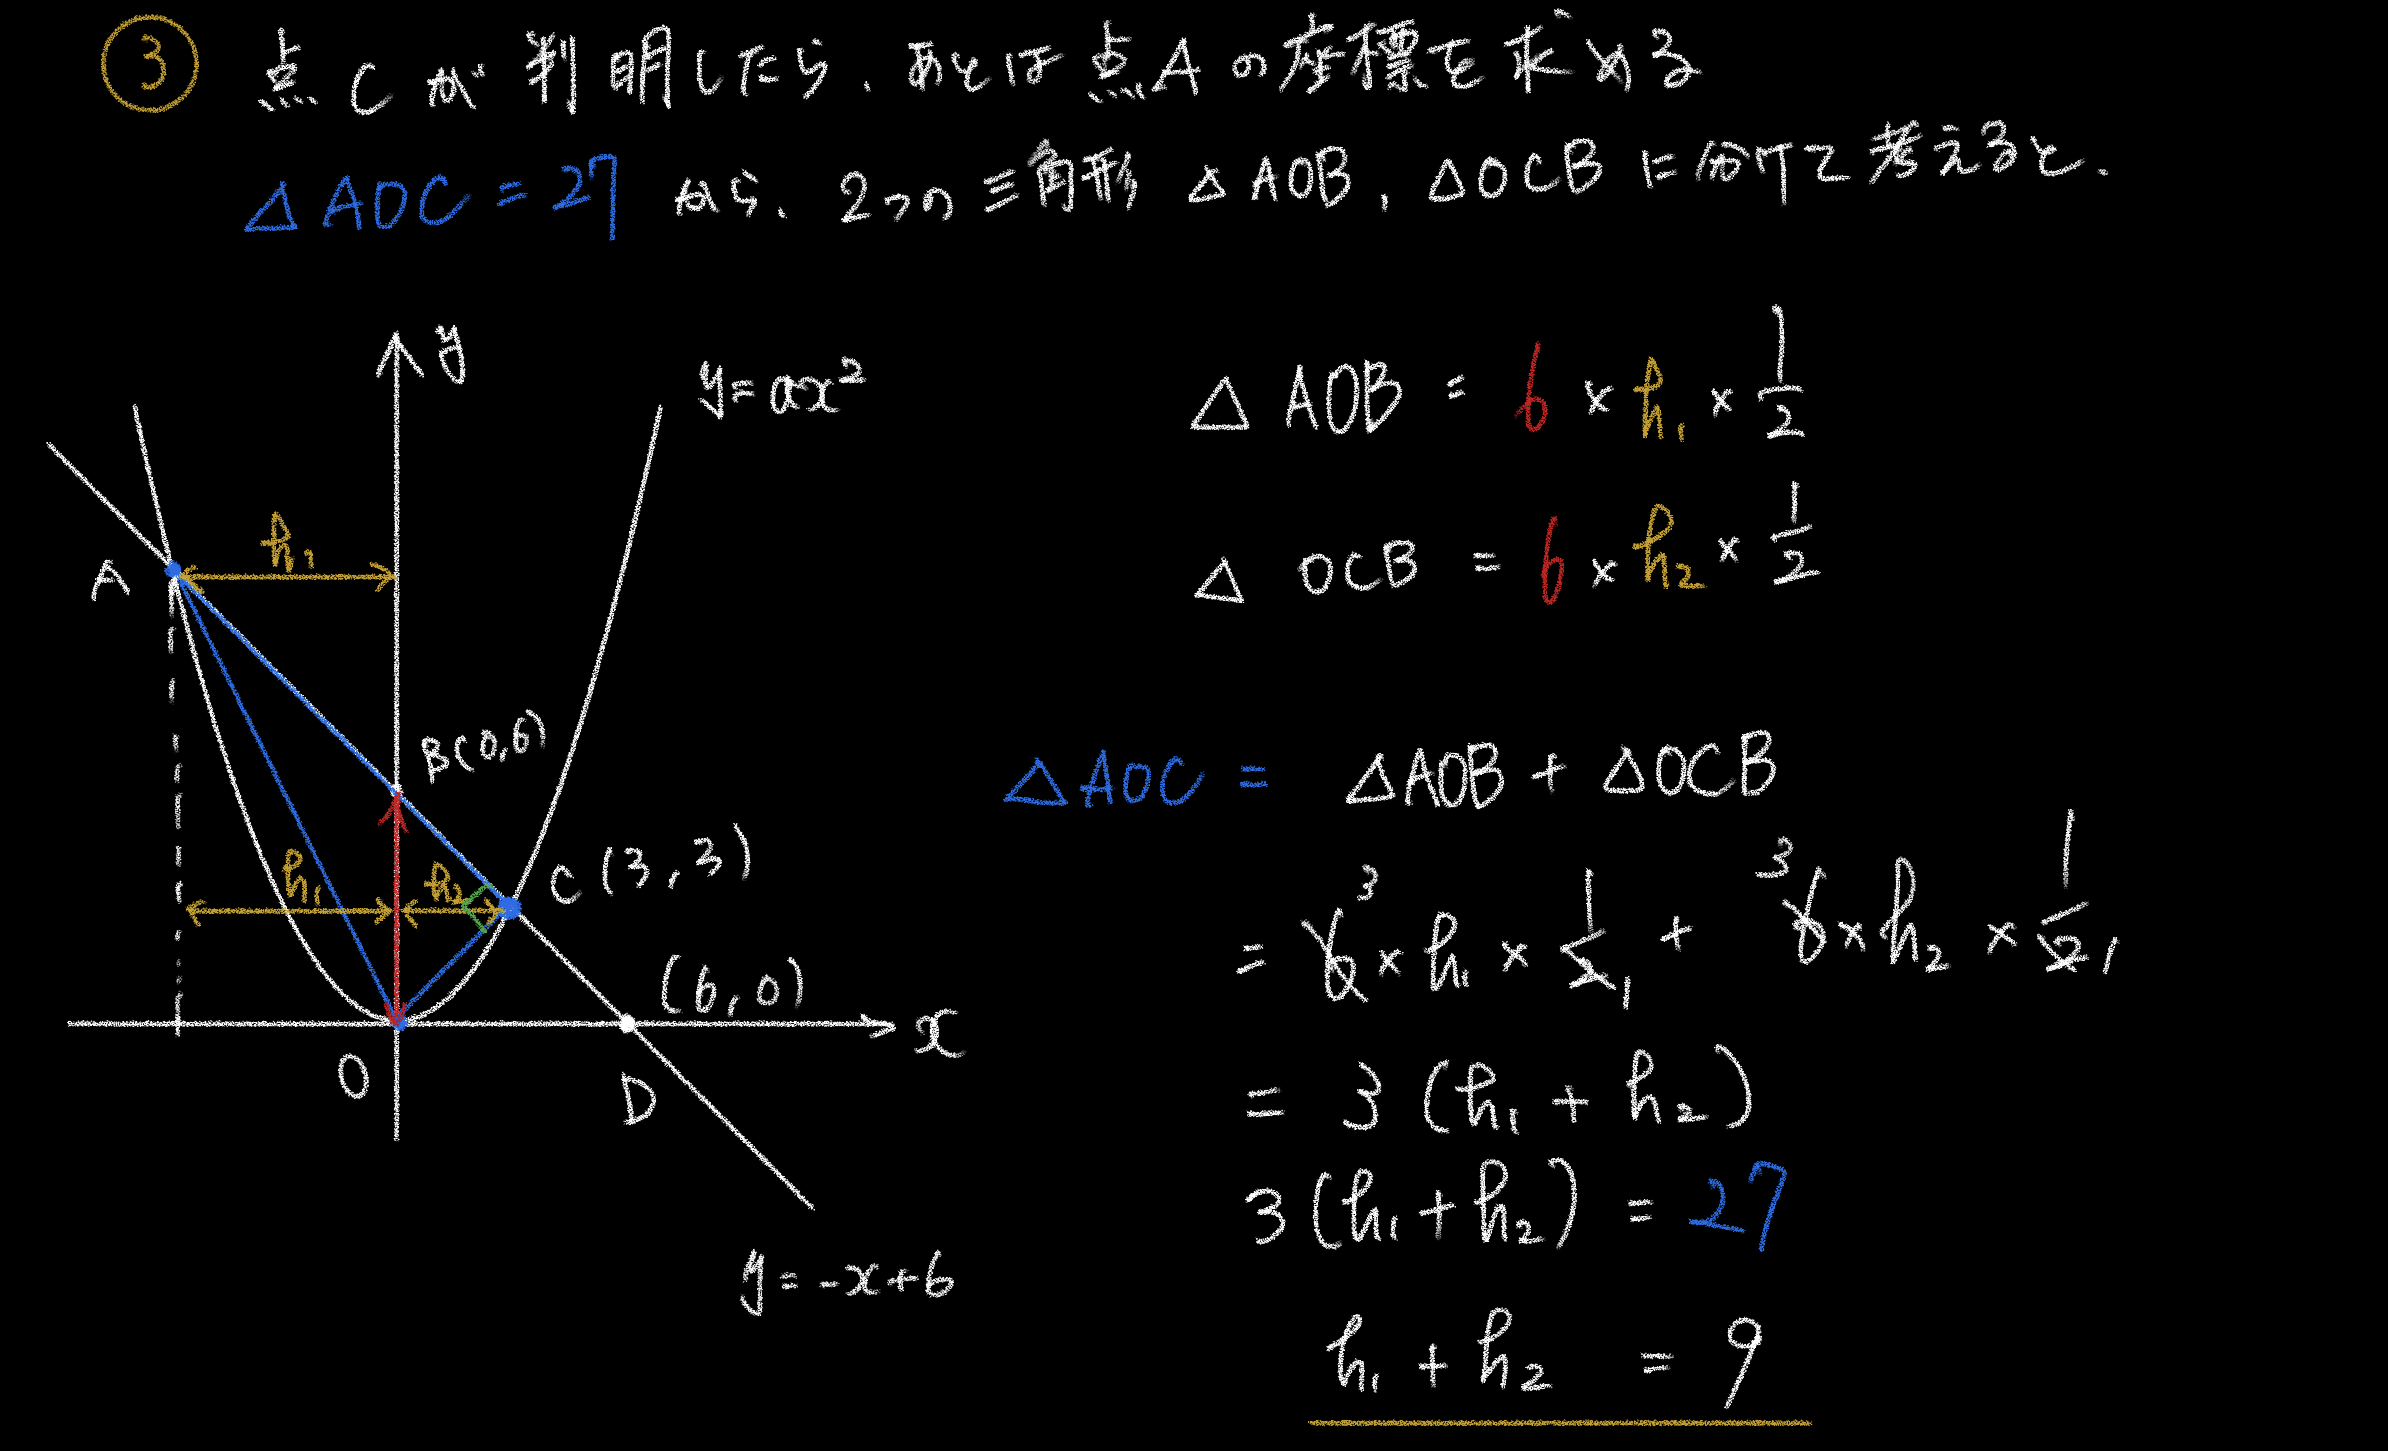 ③ 点Cが判明したら、あとは点Aの座標を求める
△AOC = 27 から、2つの三角形 △AOB, △OCBに分けて考えると、
y
y=ax²
h₁
A
B(0,6)
h₁
h₂
C(3,3)
(6,0)
x
O
D
y=-x+6
△AOB = 6 × h₁ × 1/2
△OCB = 6 × h₂ × 1/2
△AOC = △AOB + △OCB
= 6 3 × h₁ × 1/2 1 + 6 3 × h₂ × 1/2 1
= 3 (h₁ + h₂)
3 (h₁ + h₂) = 27
h₁ + h₂ = 9